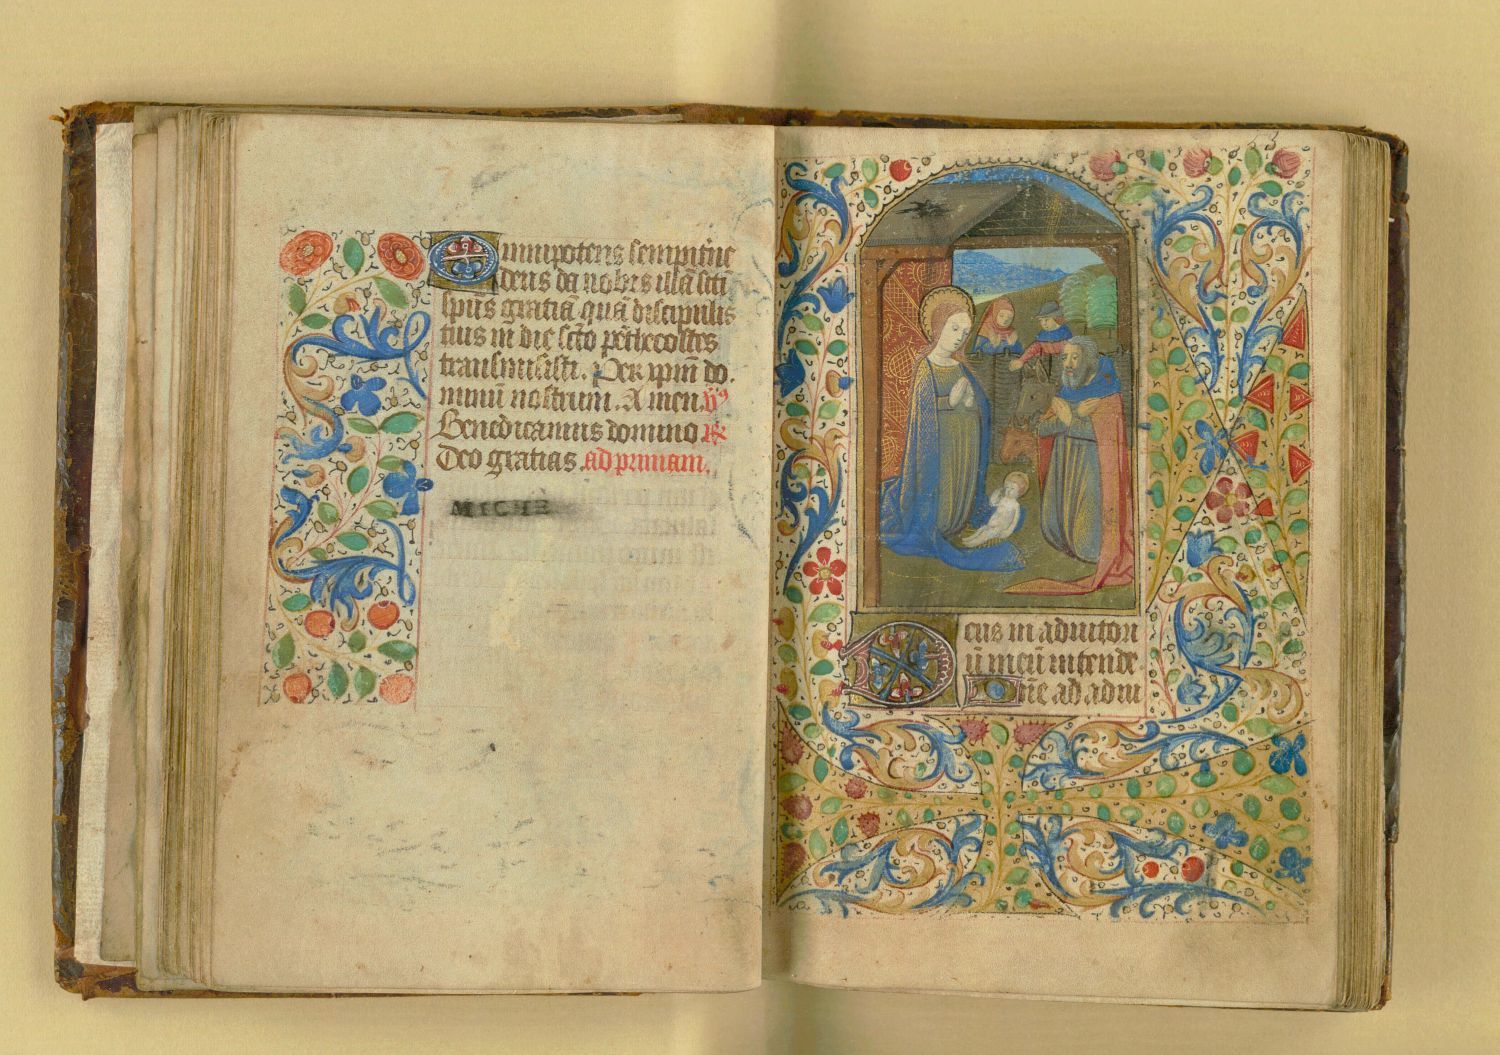 Omnipotens sempitn̄e
deus da nobis illā sc̄ti
sp̄us gratiā quā discipulis
tuis in die sc̄to pēthecostes
transmisisti. Per xp̄m do
minū nostrum. Amen. v̄s
Benedicamus domino R
Deo gratias ad primam.
MICHE
53
Deus in adiutori
ū meū intende.
Dn̄e ad adiu